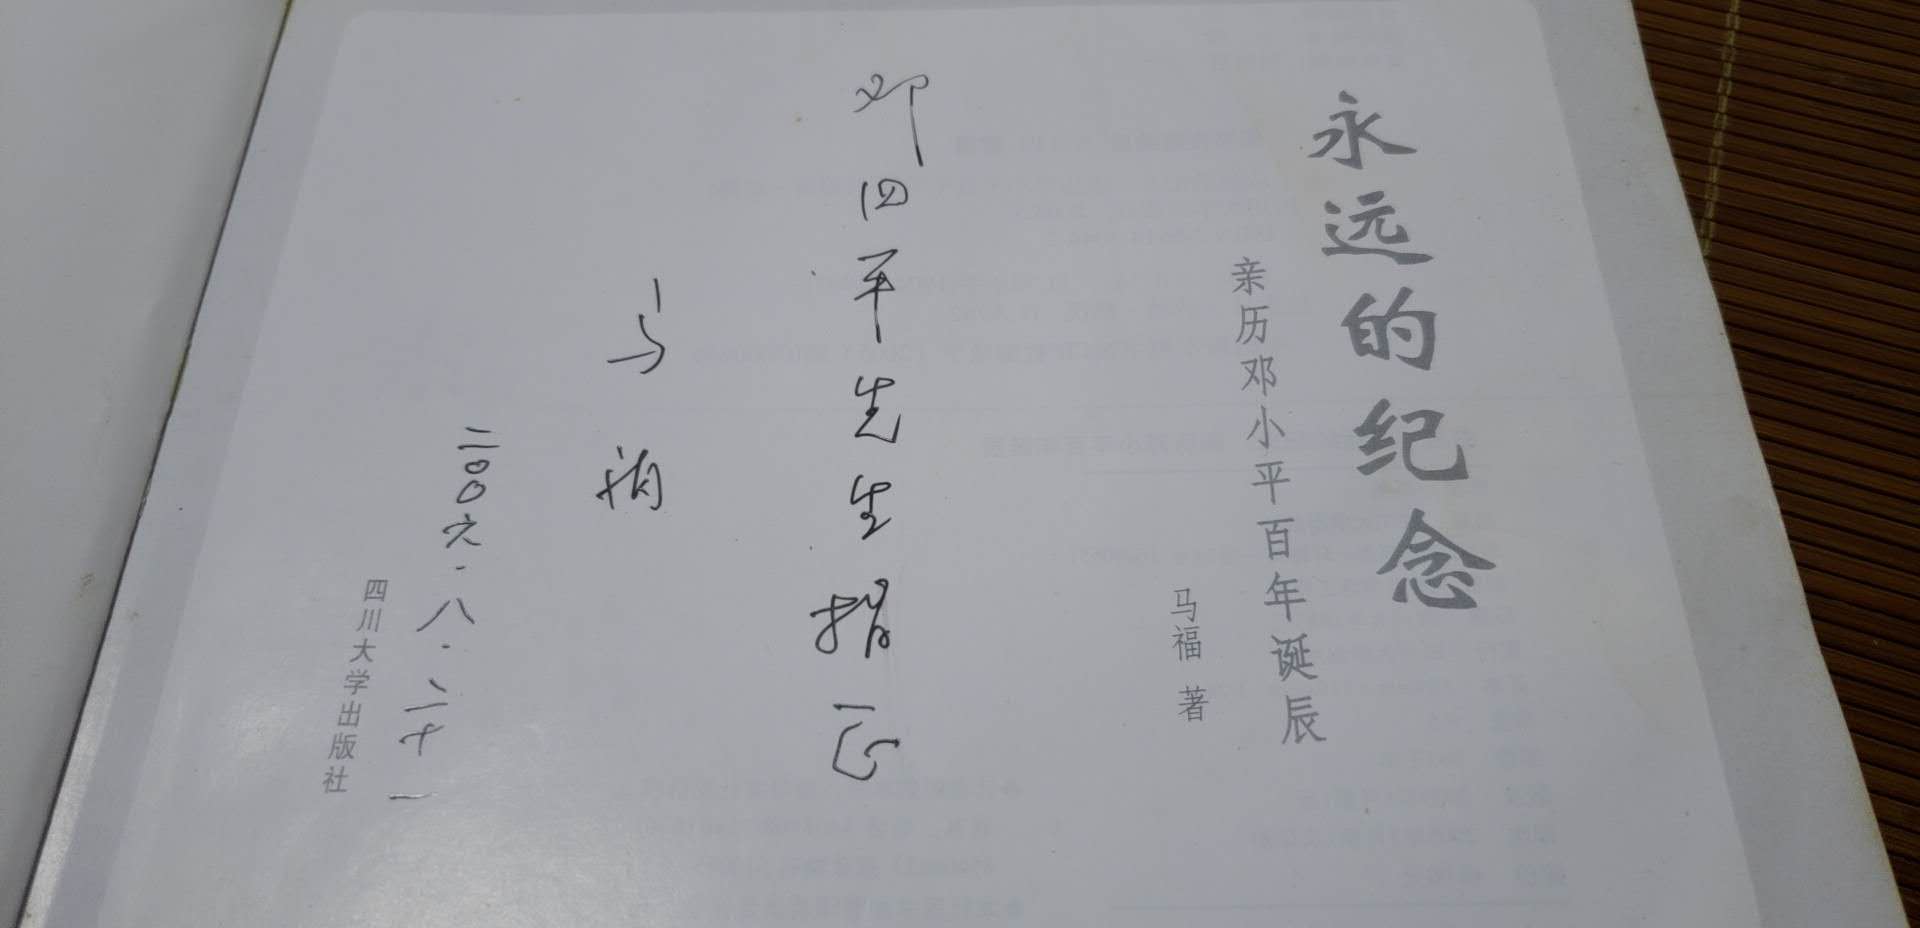 永远的纪念
亲历邓小平百年诞辰
马福 著
邓四平先生指正
马福
二〇〇六·八·二十一
四川大学出版社